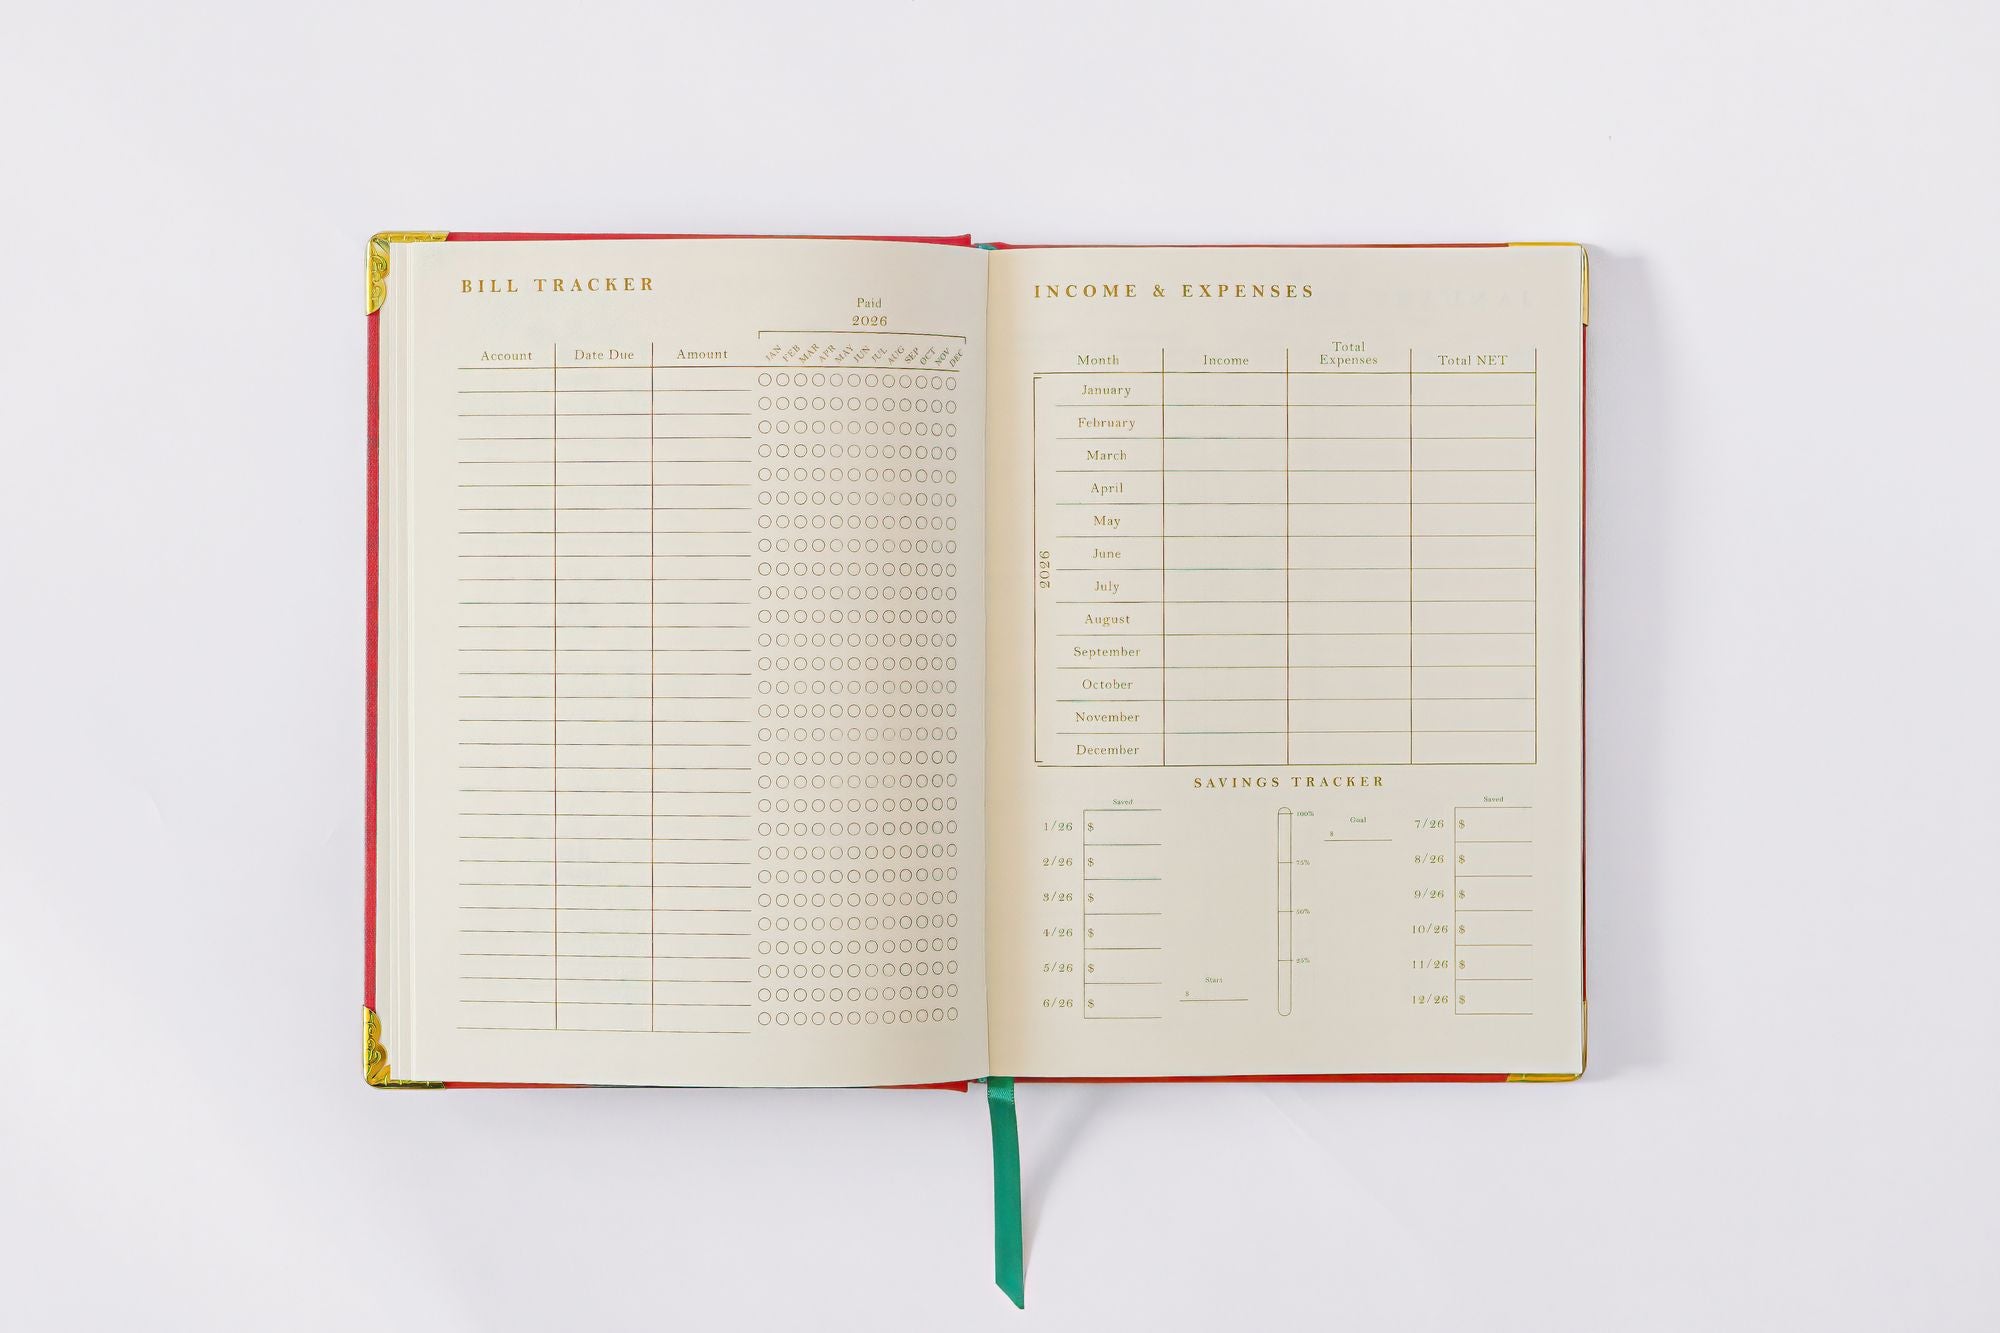 BILL TRACKER
Paid
2026
Account Date Due Amount JAN FEB MAR APR MAY JUN JUL AUG SEP OCT NOV DEC
INCOME & EXPENSES
Month Income Total Expenses Total NET
2026
January
February
March
April
May
June
July
August
September
October
November
December
SAVINGS TRACKER
Saved
1/26 $
2/26 $
3/26 $
4/26 $
5/26 $
6/26 $
Start
$
100%
75%
50%
25%
Goal
$
Saved
7/26 $
8/26 $
9/26 $
10/26 $
11/26 $
12/26 $